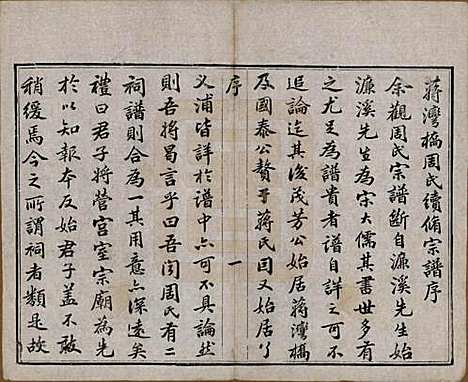 蔣灣橋周氏續脩宗譜序
余觀周氏宗譜斷自濂溪先生始
濂溪先生為宋大儒其書世多有
之尤足為譜貴者譜自詳之可不
追論迄其後茂芳公始居蔣灣橋
及國泰公贅于蔣氏因又始居
序 一
义浦皆詳於譜中亦可不具論然
則吾將曷言乎曰吾聞周氏有二
祠譜則合為一其用意亦深遠矣
禮曰君子將營宮室宗廟為先
於以知報本反始君子蓋不敢
稍緩焉今之所謂祠者類是故